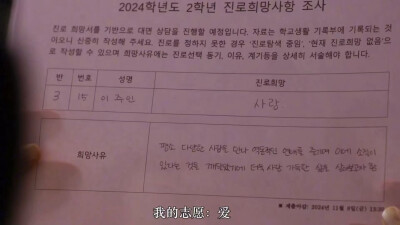 2024학년도 2학년 진로희망사항 조사
진로 희망서를 기반으로 대면 상담을 진행할 예정입니다. 자료는 학교생활 기록부에 기록되는 것
이오니 신중히 작성해 주세요. 진로를 정하지 못한 경우 '진로탐색 중임', '현재 진로희망 없음'으
로 작성할 수 있으며 희망사유에는 진로선택 동기, 이유, 계기등을 상세히 서술해야 합니다.
반 번호 성명 진로희망
3 15 이주인 사랑
평소 다양한 사람을 만나
희망사유
있다는 것을 깨달았기에
※ 제출마감: 2024년 11월
我的志愿：爱